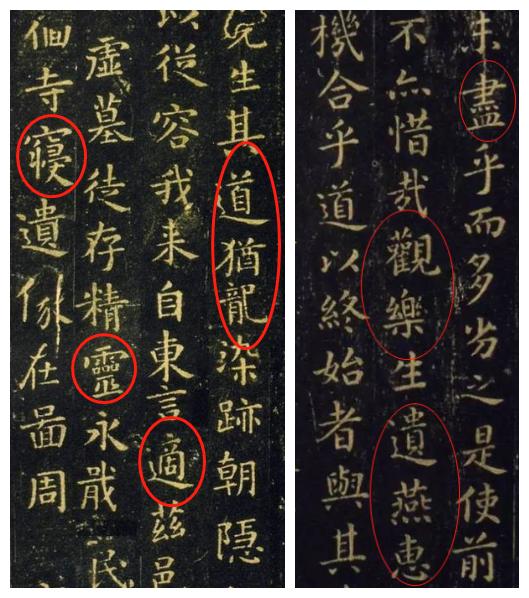 先生其道猶龍染跡朝隱
以從容我来自東言適茲邑
虛墓徒存精靈永戢民
佪寺寢遺像在啚周
未盡乎而多劣之是使前
不亦惜哉觀樂生遺燕惠
機合乎道以終始者與其